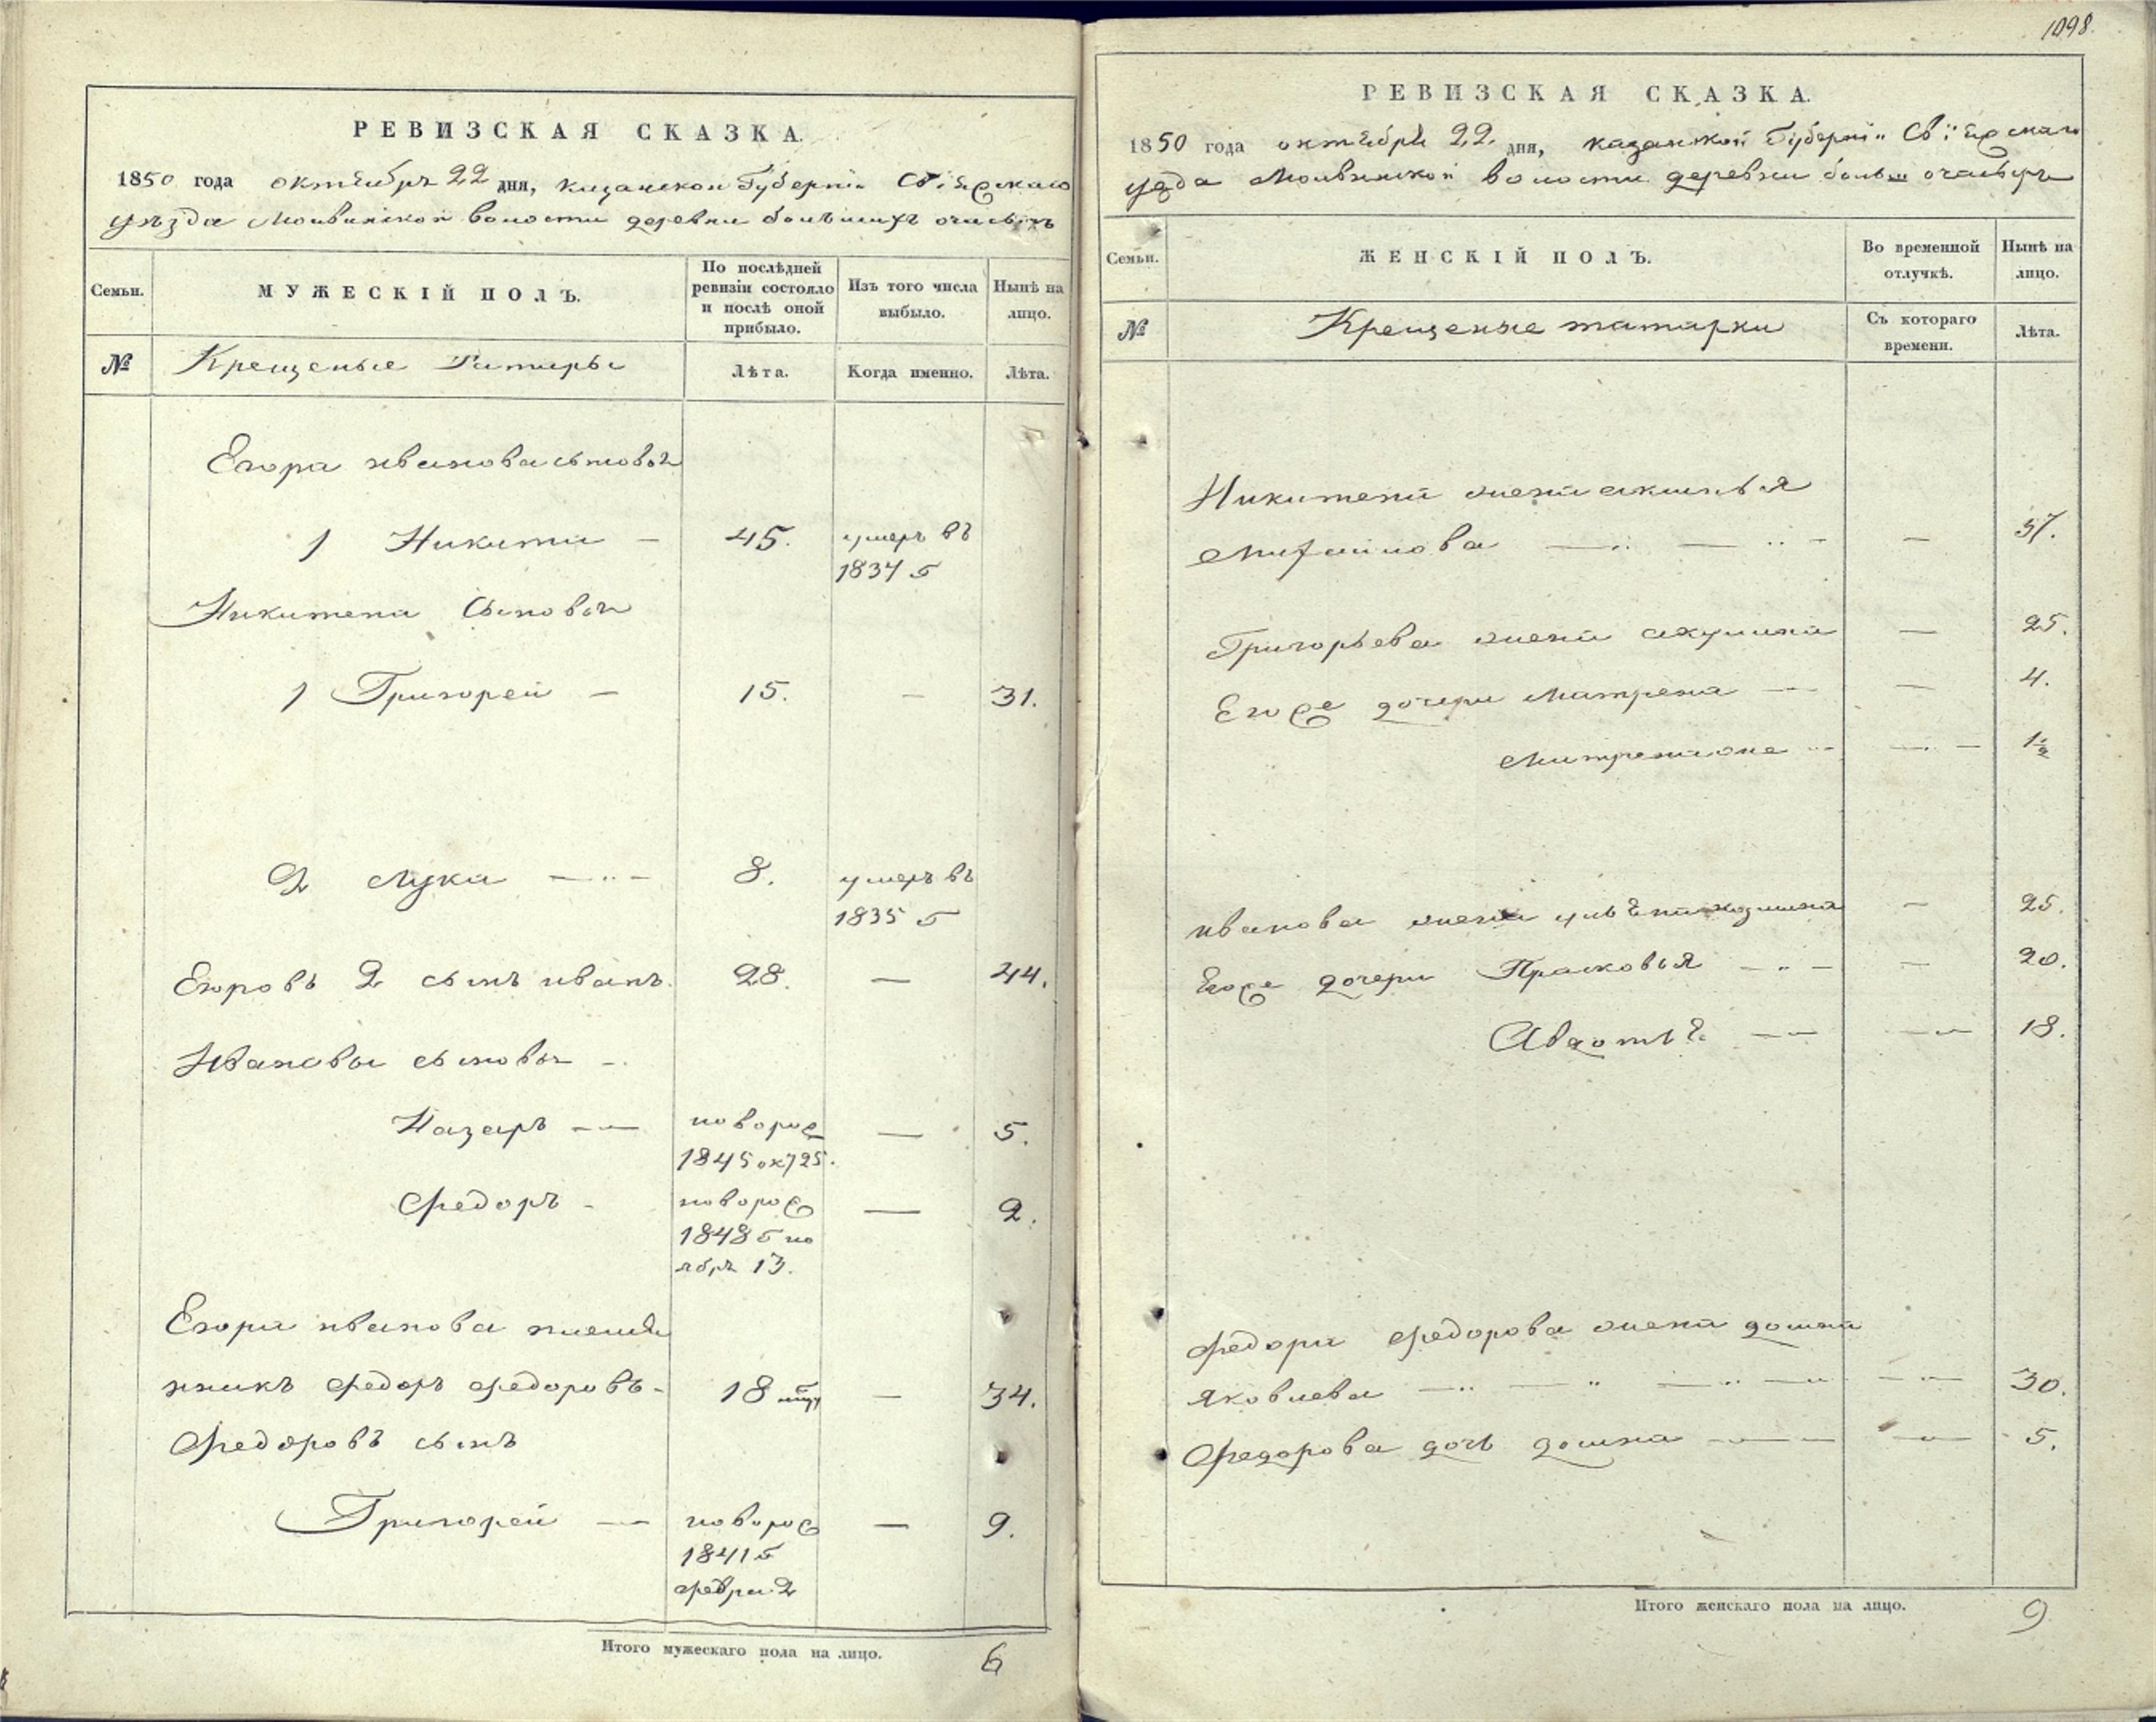 РЕВИЗСКАЯ СКАЗКА.
1850 года октября 22 дня, казанской Губерніи Свіяжскаго
уѣзда Молвинской волости деревни большихъ
Семьи.
МУЖЕСКІЙ ПОЛЪ.
По послѣдней ревизіи состояло и послѣ оной прибыло.
Изъ того числа выбыло.
Нынѣ на лицо.
№
Крещеные Татары
Лѣта.
Когда именно.
Лѣта.
Егора иванова сыновья
1 Никита — 45. умеръ въ
1837 г
Никитина Сыновья
1 Григорей — 15. — 31.
2 Лука — 8. умеръ въ
1835 г
Егоровъ 2 сынъ иванъ. 28. — 44.
Ивановы сыновья
Назаръ — новорож — 5.
1845 окт 25.
Федоръ — новорож — 2.
1848 г но
ябрь 13.
Егора иванова племя
нникъ федоръ федоровъ 18 — 34.
Федоровъ сынъ
Григорей — новорож — 9.
1841 г
февра 2
Итого мужескаго пола на лицо. 6
1098.
РЕВИЗСКАЯ СКАЗКА.
1850 года октября 22 дня, казанской Губерніи Свіяжскаго
уезда Молвинской волости деревни больш
Семьи.
ЖЕНСКІЙ ПОЛЪ.
Во временной отлучкѣ.
Нынѣ на лицо.
№
Крещеные татарки
Съ котораго времени.
Лѣта.
Никитена жена аксинья
Михайлова — 57.
Григорьева жена акулина — 25.
Егоже дочери матрена — 4.
матренаже — 1½
иванова жена — 25.
Егоже дочери Прасковья — 20.
Авдотья — 18.
федора федорова жена домна
яковлева — 30.
Федорова дочь домна — 5.
Итого женскаго пола на лицо. 9